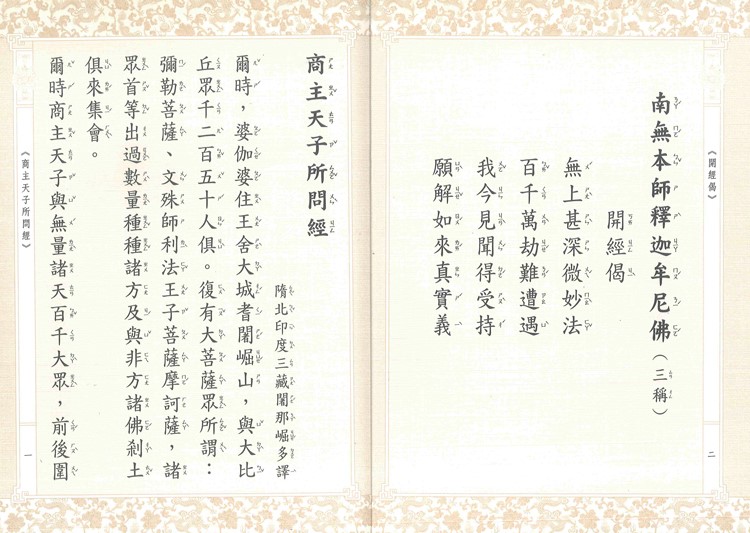 《開經偈》
南無本師釋迦牟尼佛（三稱）
開經偈
無上甚深微妙法
百千萬劫難遭遇
我今見聞得受持
願解如來真實義
二
商主天子所問經
隋北印度三藏闍那崛多譯
爾時，婆伽婆住王舍大城耆闍崛山，與大比
丘眾千二百五十人俱。復有大菩薩眾所謂：
彌勒菩薩、文殊師利法王子菩薩摩訶薩，諸
眾首等出過數量種種諸方及與非方諸佛剎土
俱來集會。
爾時商主天子與無量諸天百千大眾，前後圍
《商主天子所問經》
一